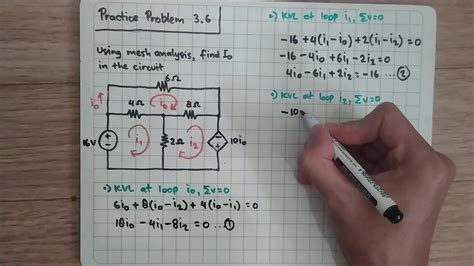 Practice Problem 3.6
Using mesh analysis, find Io
in the circuit
6Ω
io
io
4Ω
8Ω
16V
i1
2Ω
i2
10io
•) KVL at loop io, ΣV=0
6io + 8(io-i2) + 4(io-i1) = 0
18io - 4i1 - 8i2 = 0 ... ①
•) KVL at loop i1, ΣV=0
-16 + 4(i1-io) + 2(i1-i2) = 0
-16 - 4io + 6i1 - 2i2 = 0
4io - 6i1 + 2i2 = -16 ... ②
•) KVL at loop i2, ΣV=0
-10